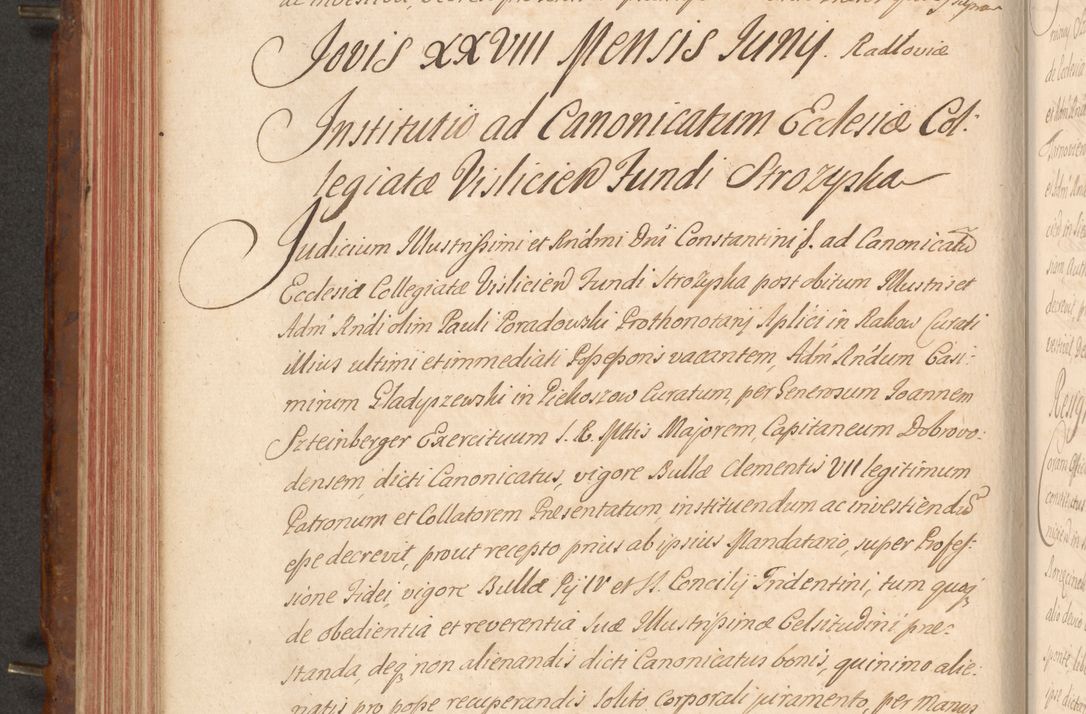 Jovis XXVIII Mensis Junij. Radloviæ
Institutio ad Canonicatum Ecclesiæ Col:
legiatæ Vislicien Fundi Strozyska
Judicium Illustrissimi et Rndmi Dni Constantini f. ad Canonicatu
Ecclesiæ Collegiatæ Vislicien Fundi Strozyska post obitum Illustris et
Adm Rndi olim Pauli Poradowski Prothonotarij Aplici in Rakow Curati
illius ultimi et immediati Possessoris vacantem, Adm Rndum Casi:
mirum Gladyszewski in Piekoszow Curatum, per Generosum Joannem
Szteinberger Exercituum S. R. Mttis Majorem, Capitaneum Dobrovo:
densem, dicti Canonicatus, vigore Bullæ Clementis VII legitimum
Patronum et Collatorem Præsentatum, instituendum ac investiendu
esse decrevit, prout recepto prius ab ipsius Mandatario, super Profes:
sione Fidei, vigore Bullæ Pij IV et S. Concilij Tridentini, tum quoq
de obedientia et reverentia Suæ Illustrissimæ Celsitudini præ:
standa, deq non alienandis dicti Canonicatus bonis, quinimo alie:
natis pro posse recuperandis solito corporali juramento, per manus